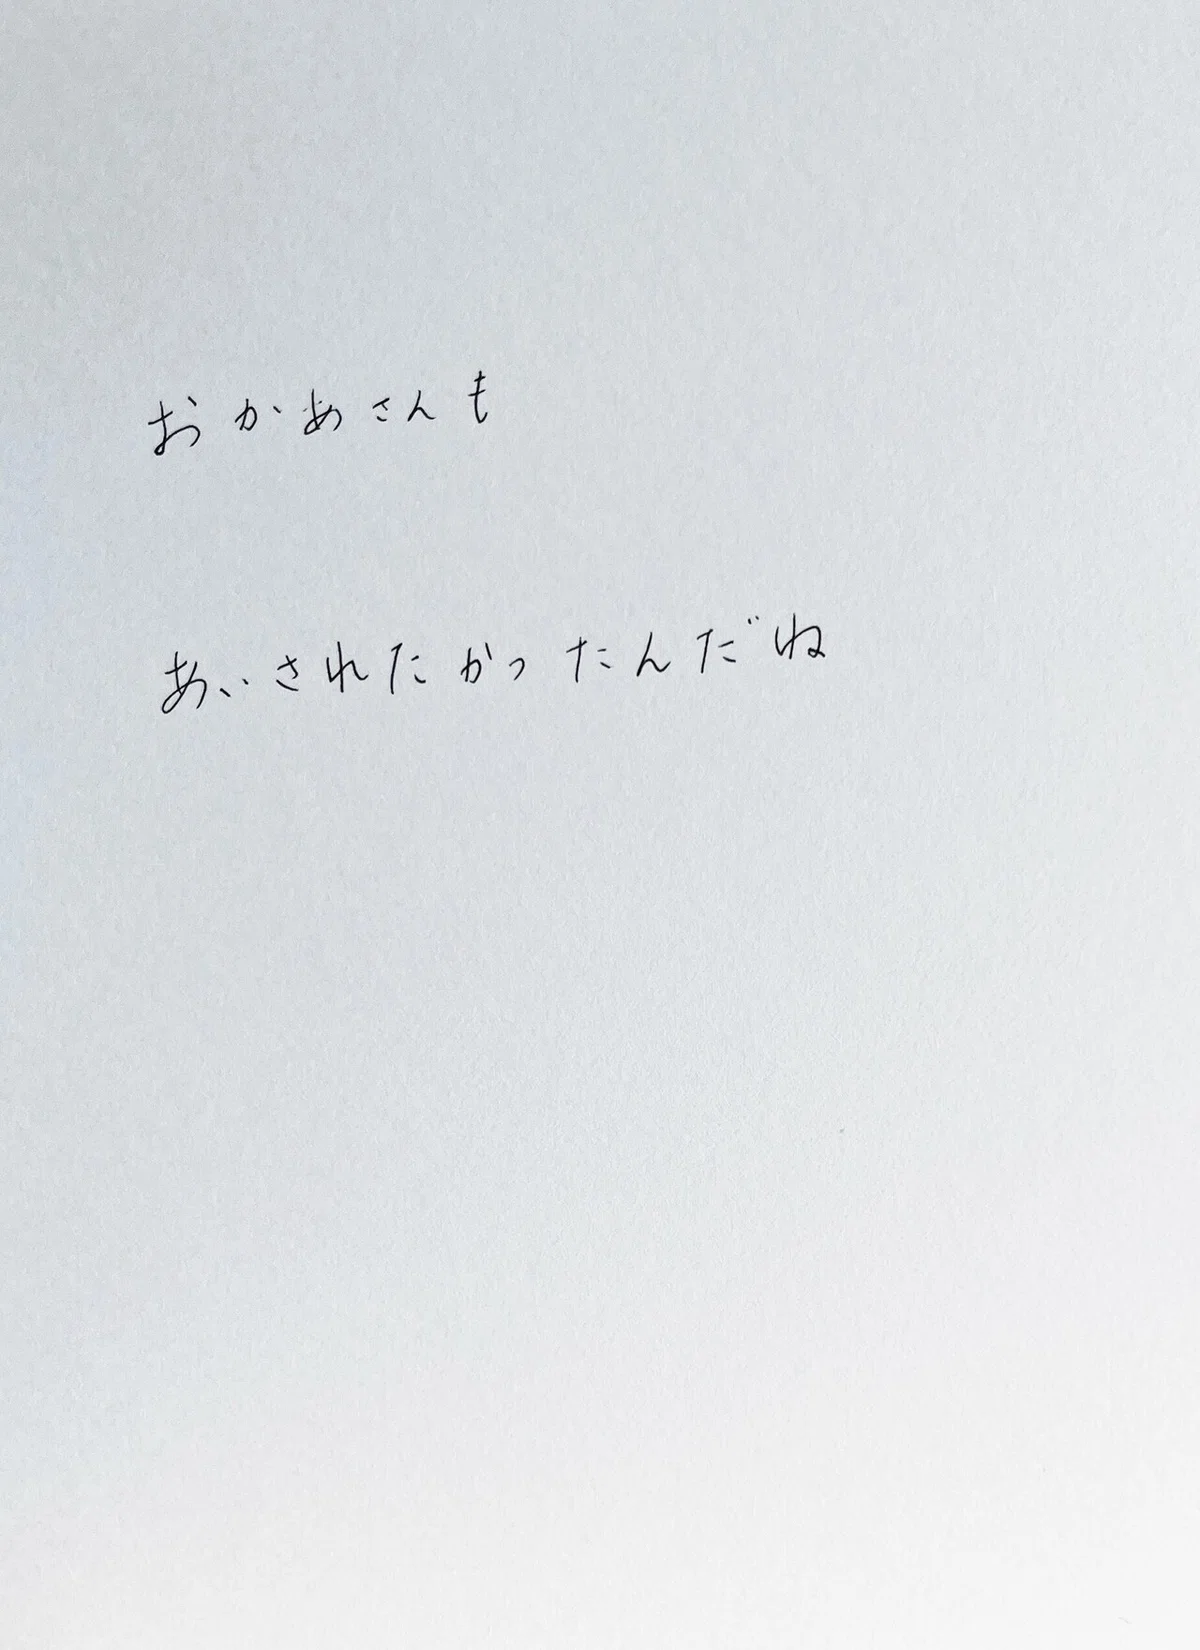 おかあさんも
あいされたかったんだね